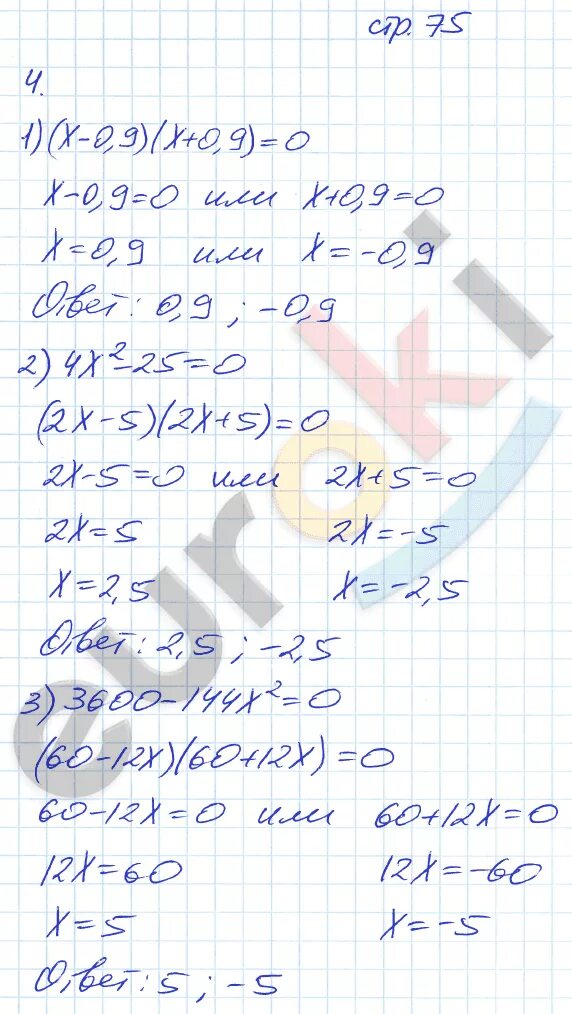 стр. 75
4.
1) (x-0,9)(x+0,9)=0
x-0,9=0 или x+0,9=0
x=0,9 или x=-0,9
Ответ: 0,9 ; -0,9
2) 4x²-25=0
(2x-5)(2x+5)=0
2x-5=0 или 2x+5=0
2x=5 2x=-5
x=2,5 x=-2,5
Ответ: 2,5 ; -2,5
3) 3600-144x²=0
(60-12x)(60+12x)=0
60-12x=0 или 60+12x=0
12x=60 12x=-60
x=5 x=-5
Ответ: 5 ; -5
euroki